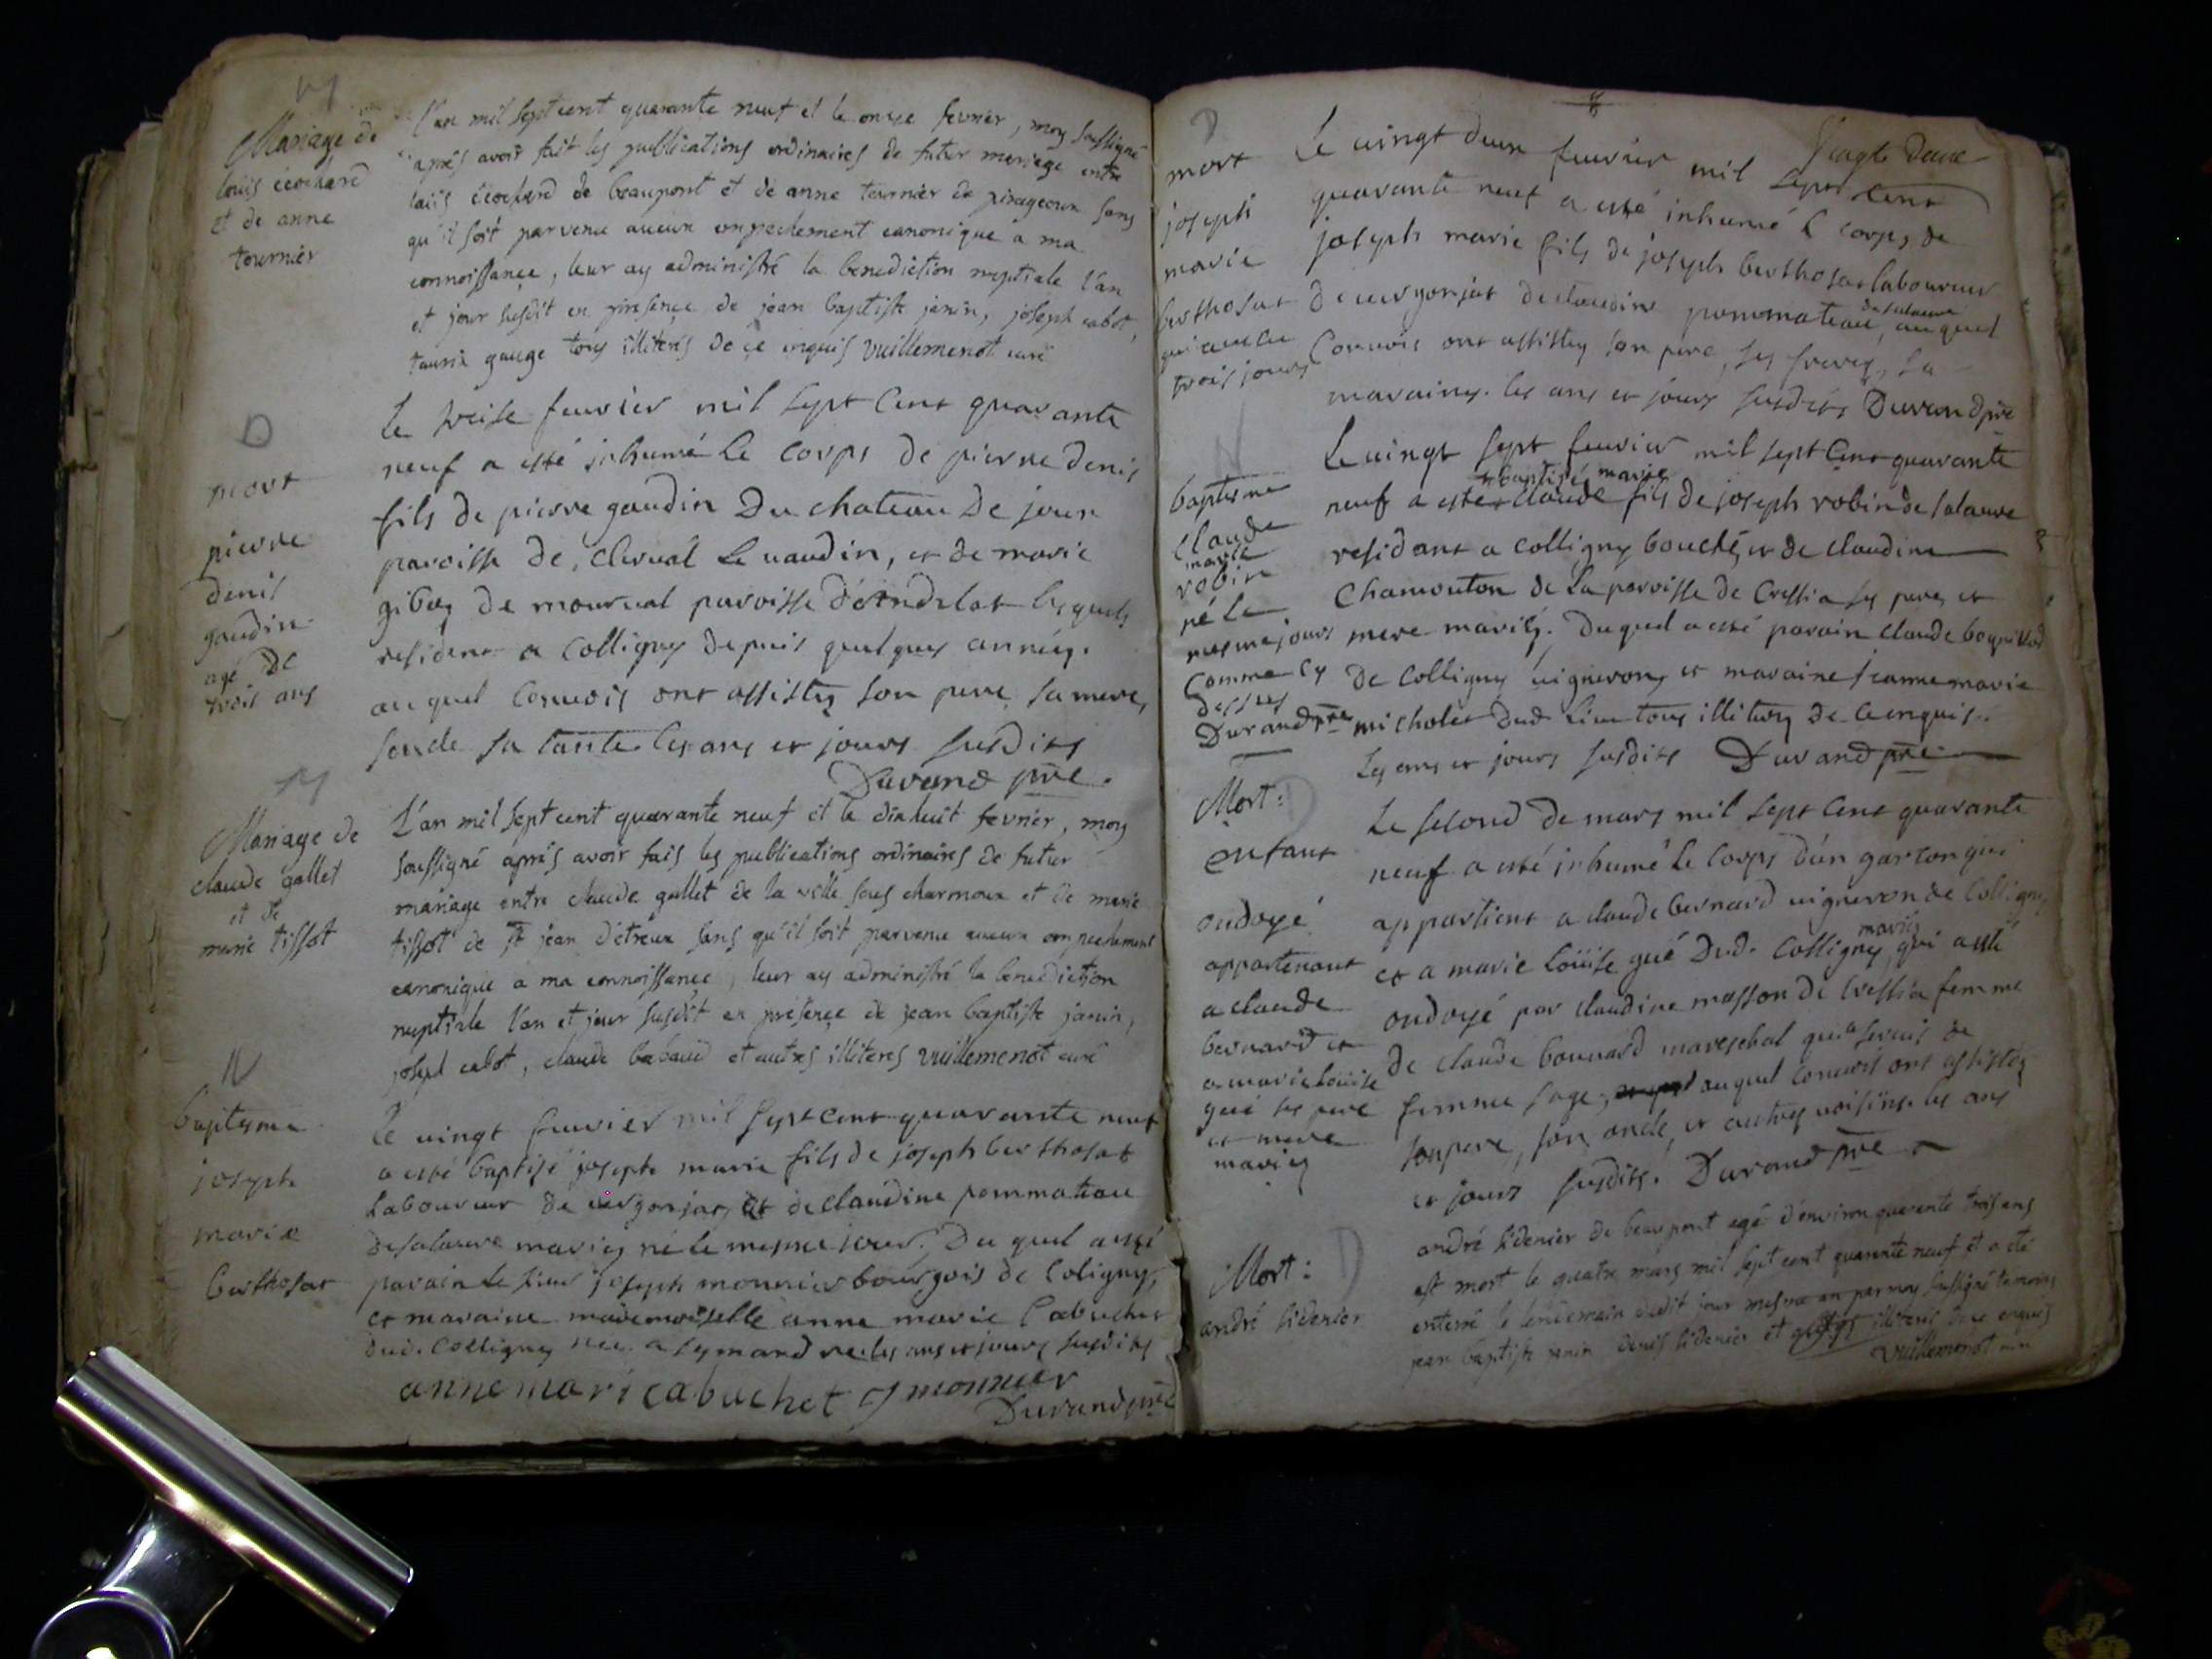 M
Mariage de
louis écochard
et de anne
tournier
L'an mil sept cent quarante neuf et le onze fevrier, moy soussigné
après avoir fait les publications ordinaires de futur mariage entre
louis écochard de beaupont et de anne tournier de pirageoux sans
qu'il soit parvenu aucun empechement canonique a ma
connoissance, leur ay administré la benediction nuptiale l'an
et jour susdit en presence de jean baptiste janin, joseph cabot,
gauge tous illiterés de ce enquis vuillemenot curé
D
mort
pierre
denis
gaudin
agé de
trois ans
le treise feuvrier mil sept Cent quarante
neuf a esté inhumé Le Corps de pierre denis
fils de pierre gaudin Du chateau De joux
paroisse de, clerval Le vaudin, et de marie
gibey De mourval paroisse d'étndelat lesquels
resident a Colligny depuis quelques années.
auquel Convois ont assistez son pere, sa mere,
soncle sa tante. Les ans et jours susdits
Durand pre.
M
Mariage de
claude gallet
et de
marie tissot
L'an mil sept cent quarante neuf et le dixhuit fevrier, moy
soussigné après avoir fais les publications ordinaires de futur
mariage entre claude gallet de la ville sous charmoux et de marie
tissot de st jean d'étreux sans qu'il soit parvenu aucun empechement
canonique a ma connoissance, leur ay administré la benediction
nuptiale l'an et jour susdit en presence de jean baptiste janin,
joseph cabot, claude babaud et autres illiteres vuillemenot curé
N
baptesme
joseph
marie
berthosat
le vingt feuvrier mil sept cent quarante neuf
a esté baptisé joseph marie fils de joseph berthosat
Laboureur de vergonjat, et de claudine pommateau
desalavre mariez né le mesme jour. Du quel a esté
parain le sieur joseph monnier bourgois de Coligny,
et maraine mademoiselle anne marie Cabuchet
dud. Colligny les ans et jours susdits
anne mari cabuchet J monnier
Durand pre
D
mort
joseph
marie
berthosat
trois jours
vingt deux
Le vingt deux feuvrier mil sept Cent
quarante neuf a esté inhumé L corps de
joseph marie fils de joseph berthosat laboureur
de vergonjat de claudine pommateau desalavre, auquel
Convois ont assistez son pere, ses freres, sa
maraine. les ans et jours susdits Durand pre
N
baptesme
Claude
marie
robin
né le
mesme jours
Comme cy
dessus
Durand pre
Le vingt sept feuvrier mil sept Cent quarante
neuf a esté baptisé claude marie fils de joseph robin de salavre
residant a Colligny bouché, et de claudine
Chamouton de La paroisse de Cressia ses pere et
mere mariés. Duquel a esté parain claude
de Colligny vigneron, et maraine jeanne marie
micholet Dud. Lieu tous illiterez De Ce enquis.
Les ans et jours susdits Durand pre
Mort: D
enfant
ondoyé
appartenant
a claude
bernard et
a marie Loüise
gué ses pere
et mere
mariez
Le second De mars mil sept Cent quarante
neuf a esté inhumé Le Corps d'un garcon qui
appartient a claude bernard vigneron de Colligny
et a marie Loüise gué Dud. Colligny mariés, qui a esté
ondoyé par claudine masson de Cressia femme
de claude bouvard mareschal qui a servis de
femme sage, auquel Convois ont assistez
son pere, son oncle, et autres voisins. les ans
et jours susdits. Durand pre
Mort: D
andré sidenier
andré sidenier de beaupont agé d'environ quarente trois ans
est mort le quatre mars mil sept cent quarante neuf et a été
enterré le lendemain dudit jour mesme an par moy soussigné temoins
jean baptiste janin denis sidenier et illiteres de ce enquis
vuillemenot curé